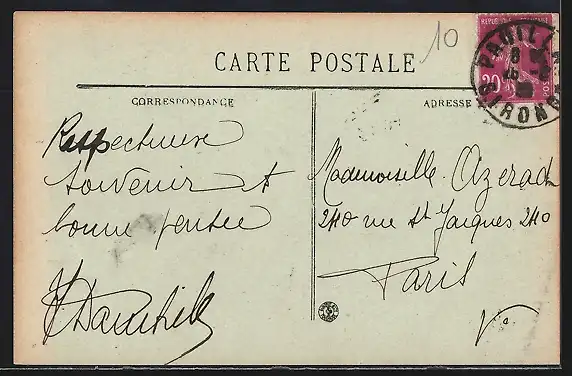 CARTE POSTALE
10
CORRESPONDANCE
ADRESSE
Respectueux
souvenir et
bonne pensée
Mademoiselle Azerad
240 rue St Jacques 240
Paris
PAUILLAC
GIRONDE
20